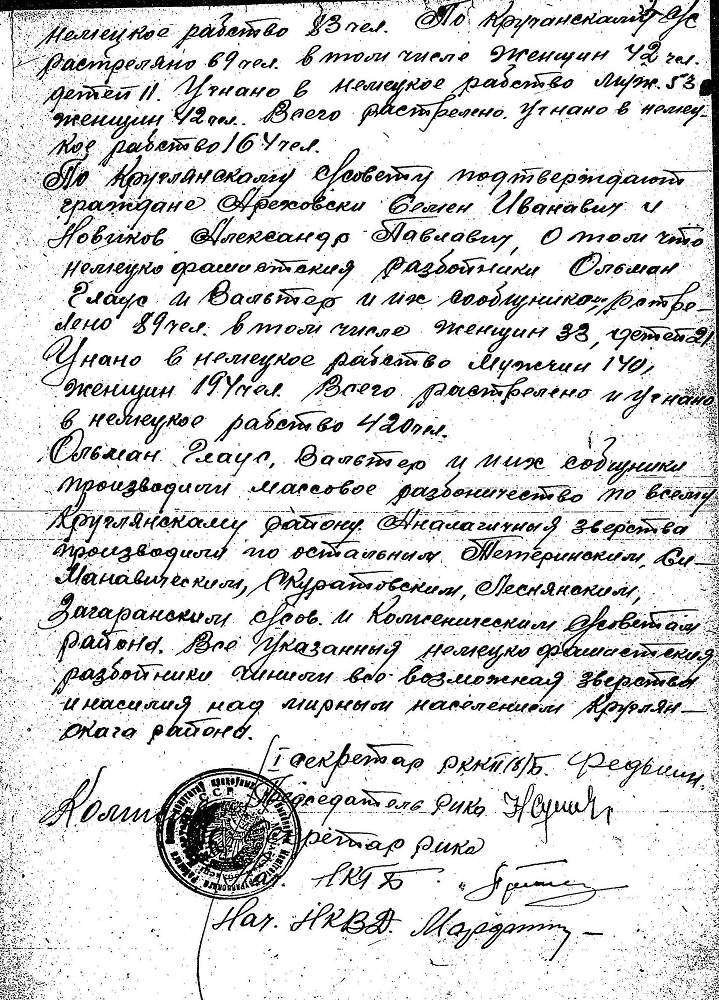 немецкое рабство 83 чел. По Кручанскому с/с
растреляно 69 чел. в том числе женщин 42 чел.
детей 11. Угнано в немецкое рабство муж. 53
женщин 42 чел. Всего растрелено, угнано в немец-
кое рабство 164 чел.
По Круглянскому с/совету подтверждают
граждане Ареховски Семен Иванавич и
Новиков Александр Павлавич, о том что
немецко фашистския разбойники Ольман
Глаус и Вальтер и их сообщники, рстре-
лено 89 чел. в том числе женщин 33, детей 21
Угнано в немецкое рабство мужчин 140,
женщин 194 чел. Всего растрелено и угнано
в немецкое рабство 420 чел.
Ольман Глаус, Вальтер и их собщники
производили массовое разбоничество по всему
Круглянскому району. Аналагичныя зверства
производили по остальным Тетеринским, Си-
манавическим, Шкуратовским, Леснянским,
Загаранским с/сов. и Комсеническим с/советам
района. Все указанныя немецко фашистския
разбойники чинили всевозможная зверства
и насилия над мирным населением Круглян-
скага района.
I секретар РККП/б/Б. Федькин.
Коми
Председатель рика
ретар рика
НКГБ
Нач. НКВД.